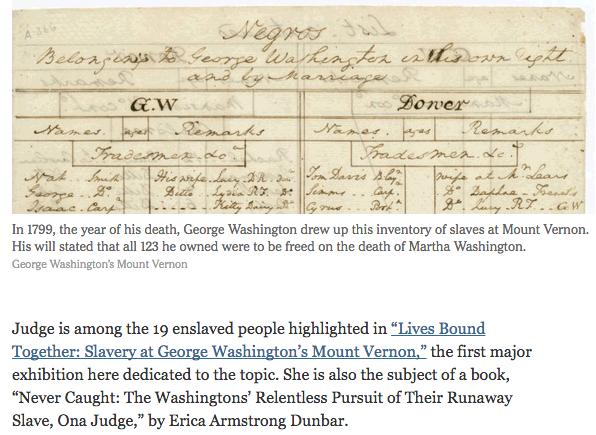 Negros
Belonging to George Washington in his own right
and by Marriage
G.W
Dower
Names. ages Remarks
Names. ages Remarks
Tradesmen &c.
Tradesmen &c.
Nat Smith His wife Lucy
Tom Davis wife at Mr. Lears
George Do. Ditto Lydia R.F. Do.
Simms Carpr. Do. Daphne French's
Isaac Carpr. Kitty Dairy
Cyrus Do. Lucy R.F. G.W
In 1799, the year of his death, George Washington drew up this inventory of slaves at Mount Vernon.
His will stated that all 123 he owned were to be freed on the death of Martha Washington.
George Washington's Mount Vernon
Judge is among the 19 enslaved people highlighted in “Lives Bound
Together: Slavery at George Washington’s Mount Vernon,” the first major
exhibition here dedicated to the topic. She is also the subject of a book,
“Never Caught: The Washingtons’ Relentless Pursuit of Their Runaway
Slave, Ona Judge,” by Erica Armstrong Dunbar.